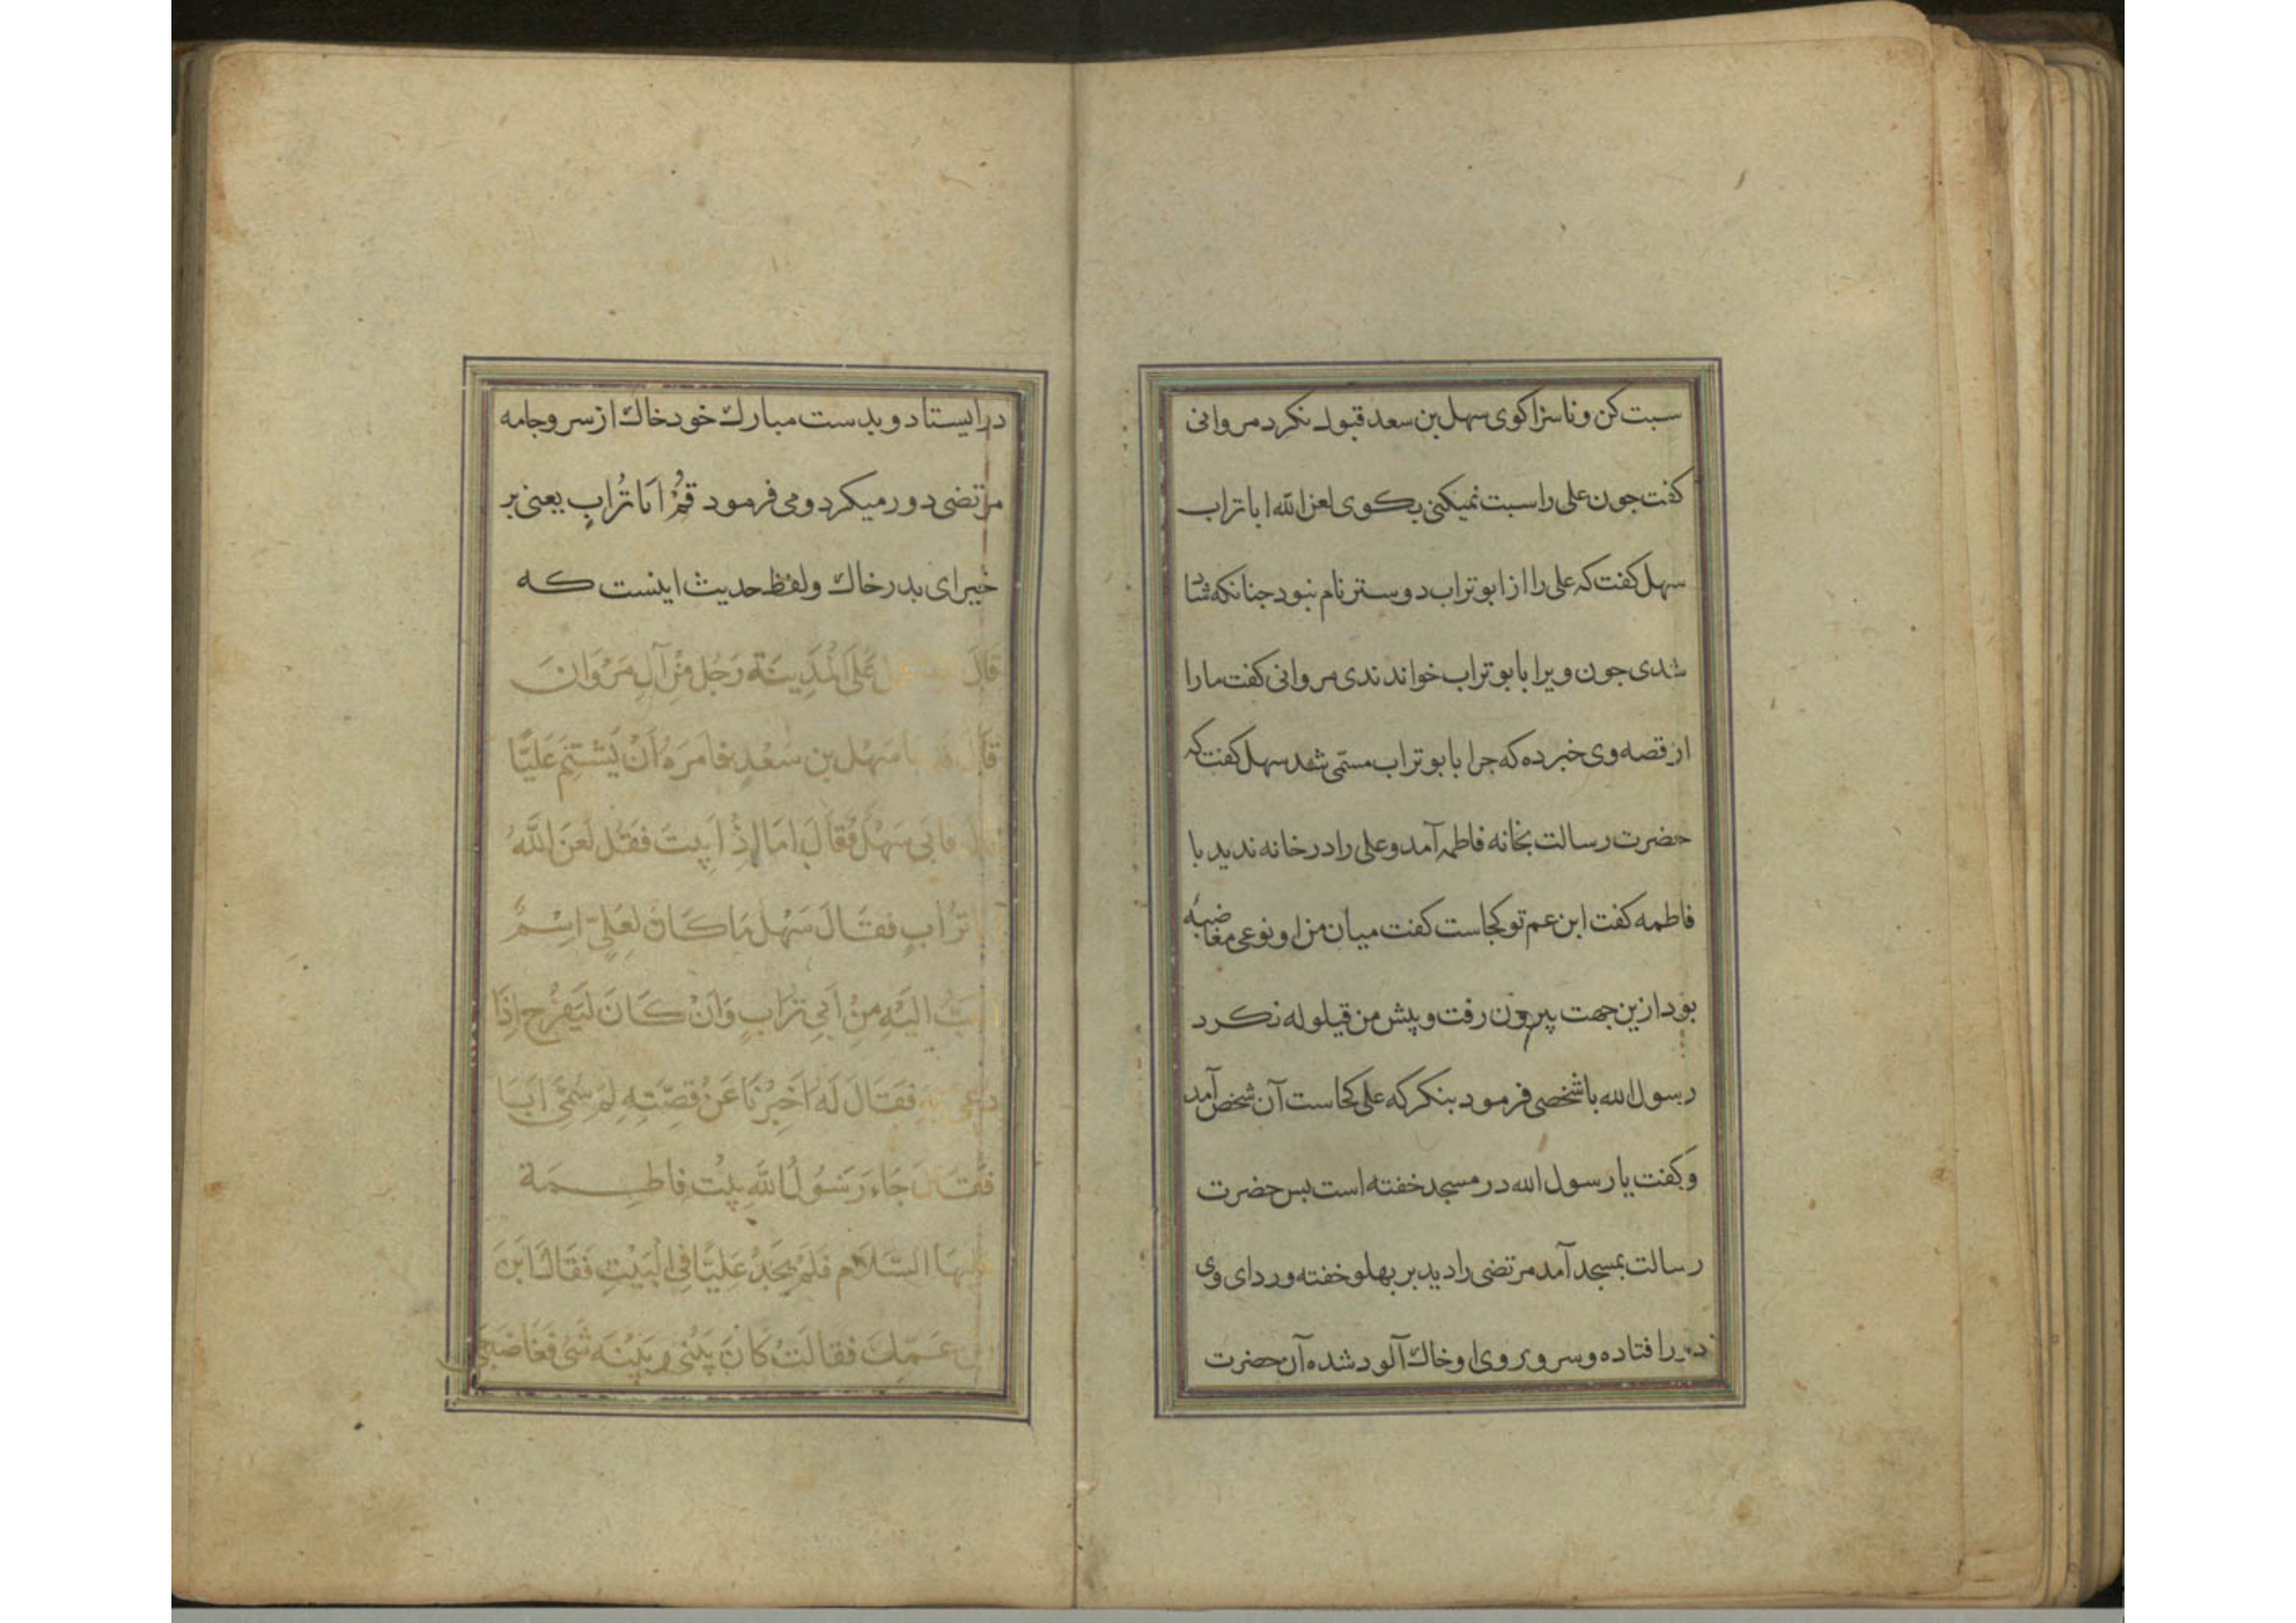 سبت کن و ناسزا کوی سهل بن سعد قبول نکرد مروانی
کفت جون علی را سبت نمیکنی بکوی لعن الله ابا تراب
سهل کفت که علی را از ابو تراب دوستر نام نبود جنانکه شاد
شدی جون ویرا بابو تراب خواندندی مروانی کفت ما را
از قصه وی خبر ده که جرا بابو تراب مسمّی شد سهل کفت که
حضرت رسالت بخانه فاطمه آمد و علی را در خانه ندید با
فاطمه کفت ابن عم تو کجاست کفت میان من و او نوعی مغاضبه
بود ازین جهت بیرون رفت و پیش من قیلوله نکرد
رسول الله با شخصی فرمود بنکر که علی کجاست آن شخص آمد
و کفت یا رسول الله در مسجد خفته است بس حضرت
رسالت بمسجد آمد مرتضی را دید بر بهلو خفته و ردای وی
افتاده و سر و روی او خاك آلود شده آن حضرت
در ایستاد و بدست مبارك خود خاك از سر و جامه
مرتضی دور میکرد و می فرمود قُمْ اَبَا تُرابٍ یعنی بر
خیر ای بدر خاك و لفظ حدیث اینست که
قَالَ عَلَى الْمَدِينَةِ رَجُلٌ مِنْ آلِ مَرْوَانَ
قَالَ سَهْل بن سَعْدٍ فامَرَهُ اَنْ يَشْتِمَ عَلِيًّا
فابى سَهْلٌ فقَالَ امَا اِذْ اَبيتَ فَقُل لَعَنَ اللَّهُ
تُرَابٍ فقَالَ سَهْل مَا كَانَ لِعَلِيّ اِسْمٌ
اِلَيْهِ مِنْ اَبِي تُرابٍ وَاَنْ كَانَ لَيَفْرَح اِذَا
دعى بِهِ فَقَالَ لَهُ اَخْبِرْنَا عَنْ قِصَّتِهِ لِمَ سُمِّىَ اَبَا
فَقَالَ جَاءَ رَسُولُ اللَّهِ بيْت فاطِمَة
السَّلَام فَلَمْ يَجِدْ عَلِيًّا فِي الْبَيْتِ فَقَالَ اَيْنَ
عَمّكَ فقالَتْ كَانَ بَيْنِى وبَيْنَهُ شَىْ فَغَاضَبَنِى